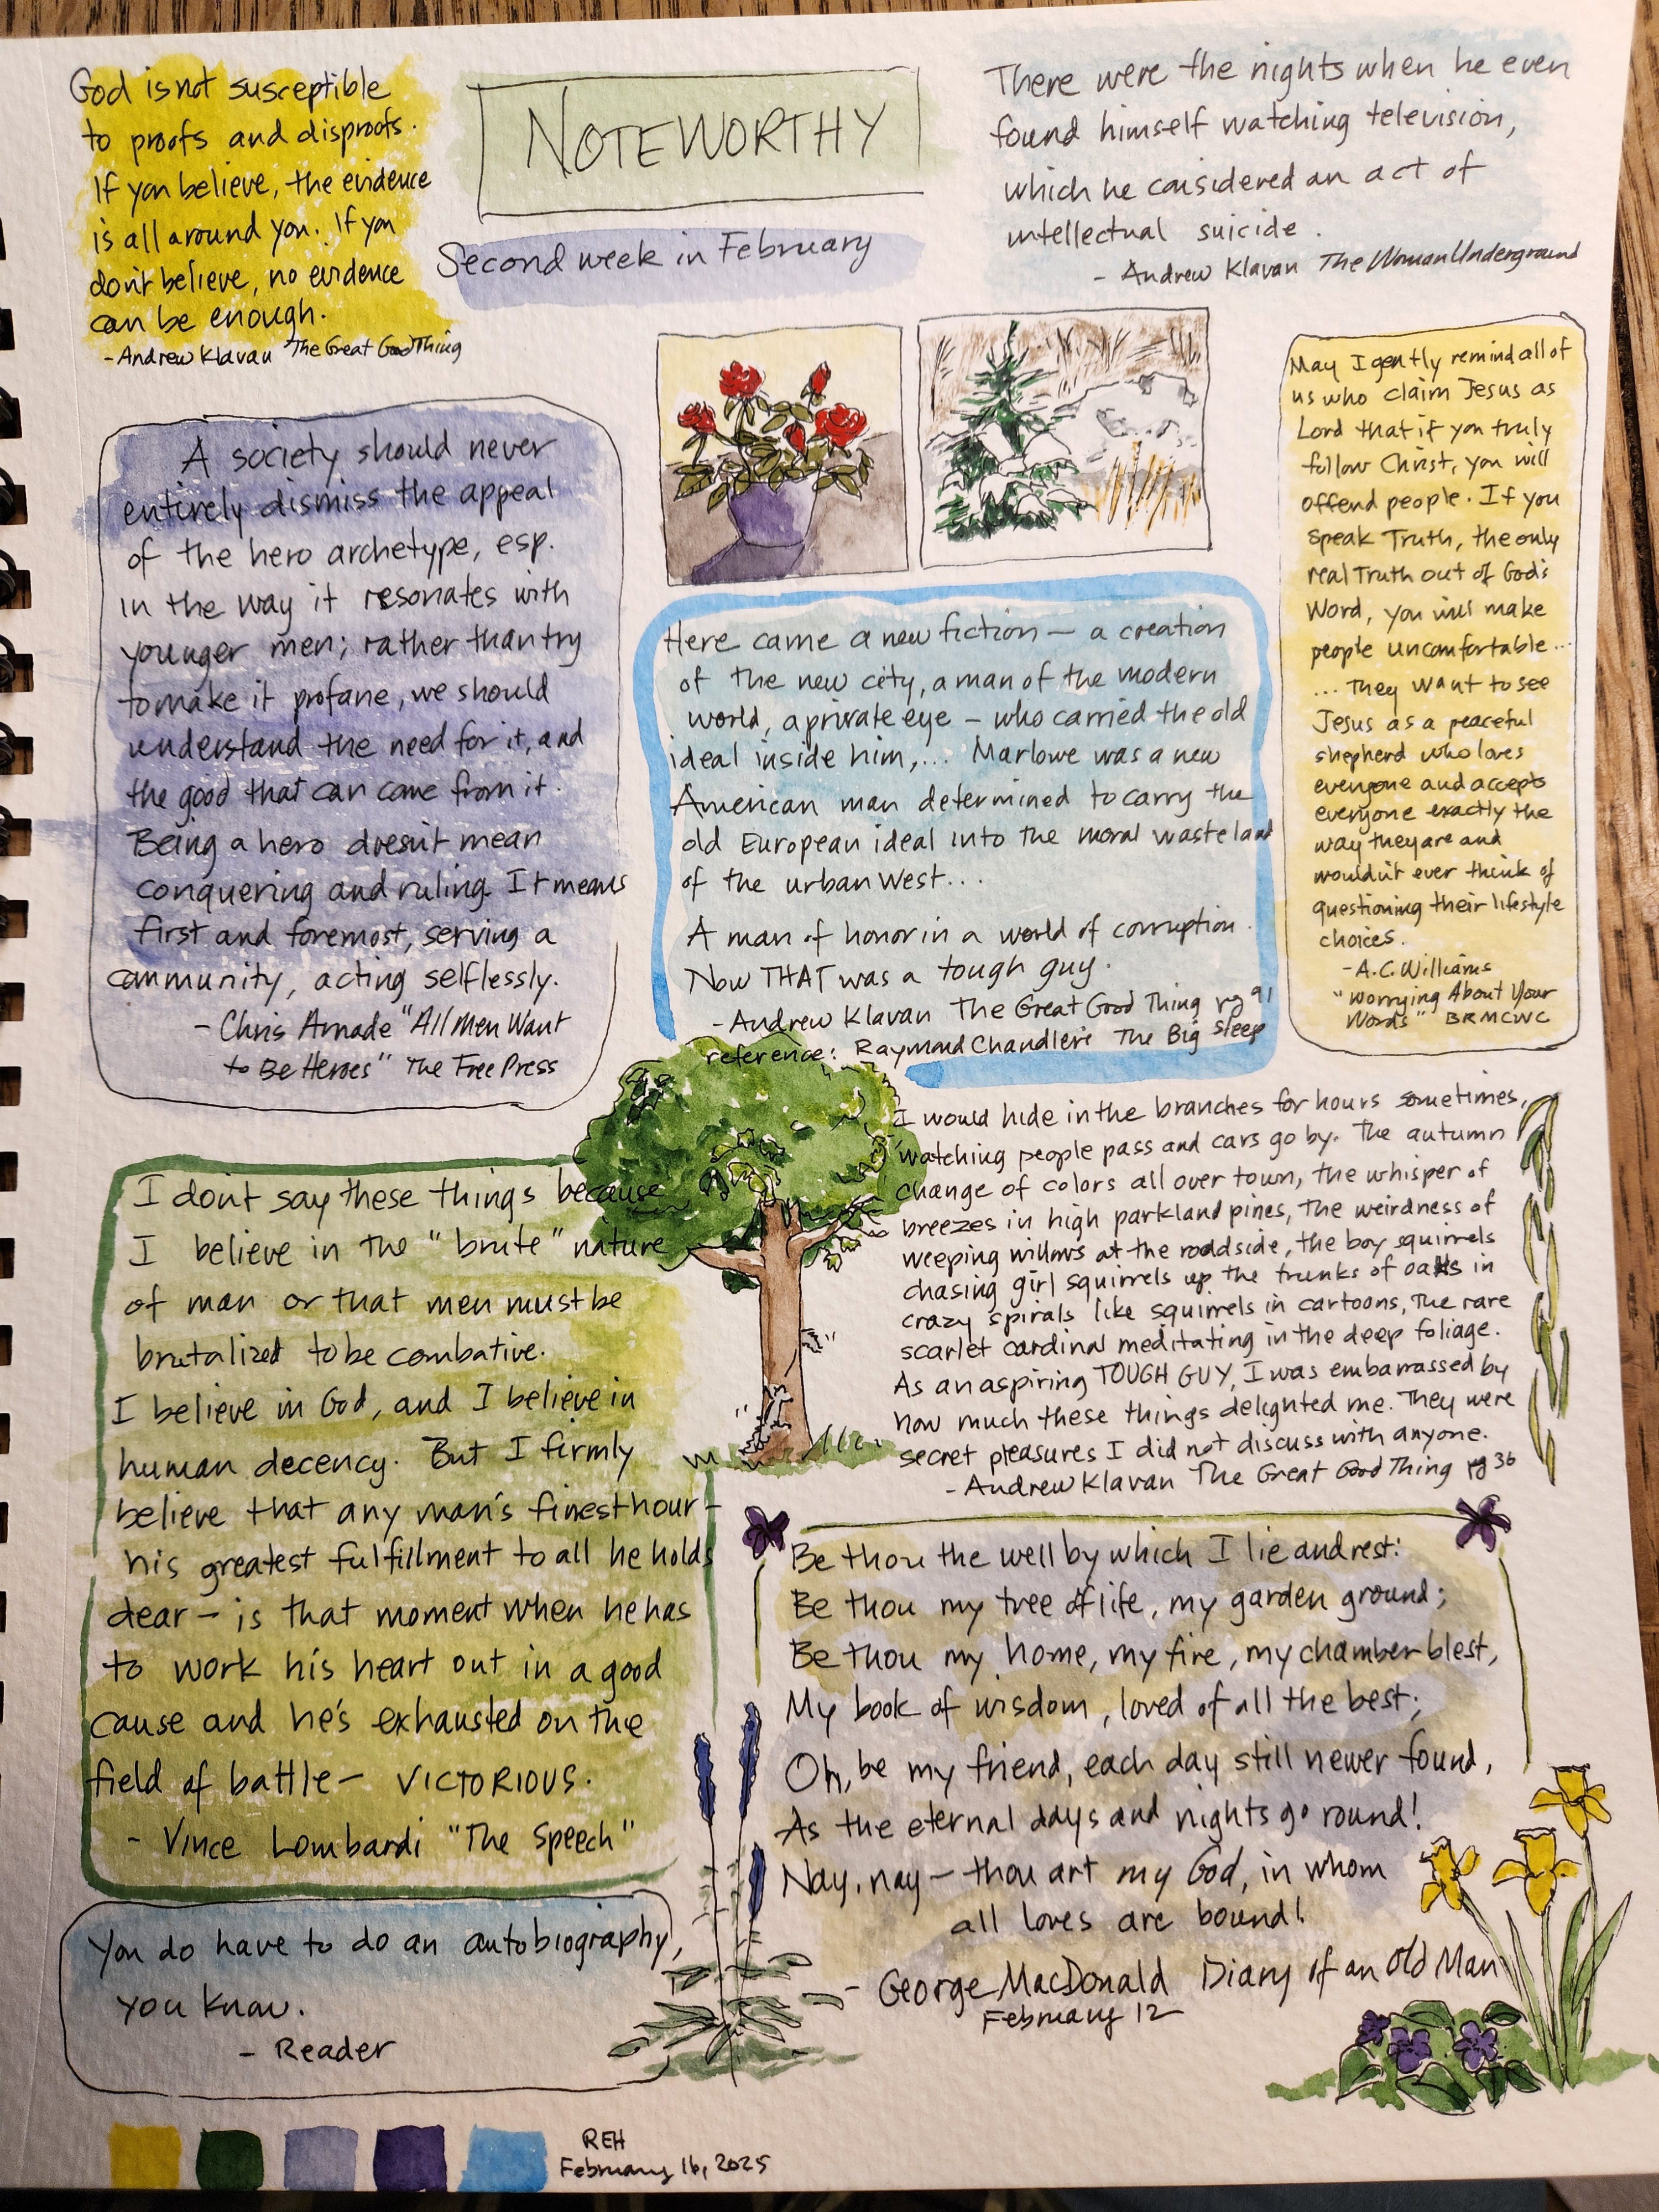 NOTEWORTHY
Second week in February
God is not susceptible
to proofs and disproofs.
If you believe, the evidence
is all around you. If you
don't believe, no evidence
can be enough.
- Andrew Klavan The Great Good Thing
There were the nights when he even
found himself watching television,
which he considered an act of
intellectual suicide.
- Andrew Klavan The Woman Underground
A society should never
entirely dismiss the appeal
of the hero archetype, esp.
in the way it resonates with
younger men; rather than try
to make it profane, we should
understand the need for it, and
the good that can come from it.
Being a hero doesn't mean
conquering and ruling. It means
first and foremost, serving a
community, acting selflessly.
- Chris Arnade "All Men Want
to Be Heroes" The Free Press
Here came a new fiction — a creation
of the new city, a man of the modern
world, a private eye — who carried the old
ideal inside him,... Marlowe was a new
American man determined to carry the
old European ideal into the moral wasteland
of the urban West...
A man of honor in a world of corruption.
Now THAT was a tough guy.
- Andrew Klavan The Great Good Thing pg 91
reference: Raymond Chandler's The Big Sleep
May I gently remind all of
us who claim Jesus as
Lord that if you truly
follow Christ, you will
offend people. If you
speak Truth, the only
real Truth out of God's
Word, you will make
people uncomfortable...
...They want to see
Jesus as a peaceful
shepherd who loves
everyone and accepts
everyone exactly the
way they are and
wouldn't ever think of
questioning their lifestyle
choices.
- A.C. Williams
"Worrying About Your
Words" BRMCWC
I would hide in the branches for hours sometimes,
watching people pass and cars go by. The autumn
change of colors all over town, the whisper of
breezes in high parkland pines, the weirdness of
weeping willows at the roadside, the boy squirrels
chasing girl squirrels up the trunks of oaks in
crazy spirals like squirrels in cartoons, the rare
scarlet cardinal meditating in the deep foliage.
As an aspiring TOUGH GUY, I was embarrassed by
how much these things delighted me. They were
secret pleasures I did not discuss with anyone.
- Andrew Klavan The Great Good Thing pg 36
I don't say these things because
I believe in the "brute" nature
of man or that men must be
brutalized to be combative.
I believe in God, and I believe in
human decency. But I firmly
believe that any man's finest hour -
his greatest fulfillment to all he holds
dear — is that moment when he has
to work his heart out in a good
cause and he's exhausted on the
field of battle — VICTORIOUS.
- Vince Lombardi "The Speech"
Be thou the well by which I lie and rest:
Be thou my tree of life, my garden ground;
Be thou my home, my fire, my chamber blest,
My book of wisdom, loved of all the best;
Oh, be my friend, each day still newer found,
As the eternal days and nights go round!
Nay, nay — thou art my God, in whom
all loves are bound!
- George MacDonald Diary of an Old Man
February 12
You do have to do an autobiography,
you know.
- Reader
REH
February 16, 2025